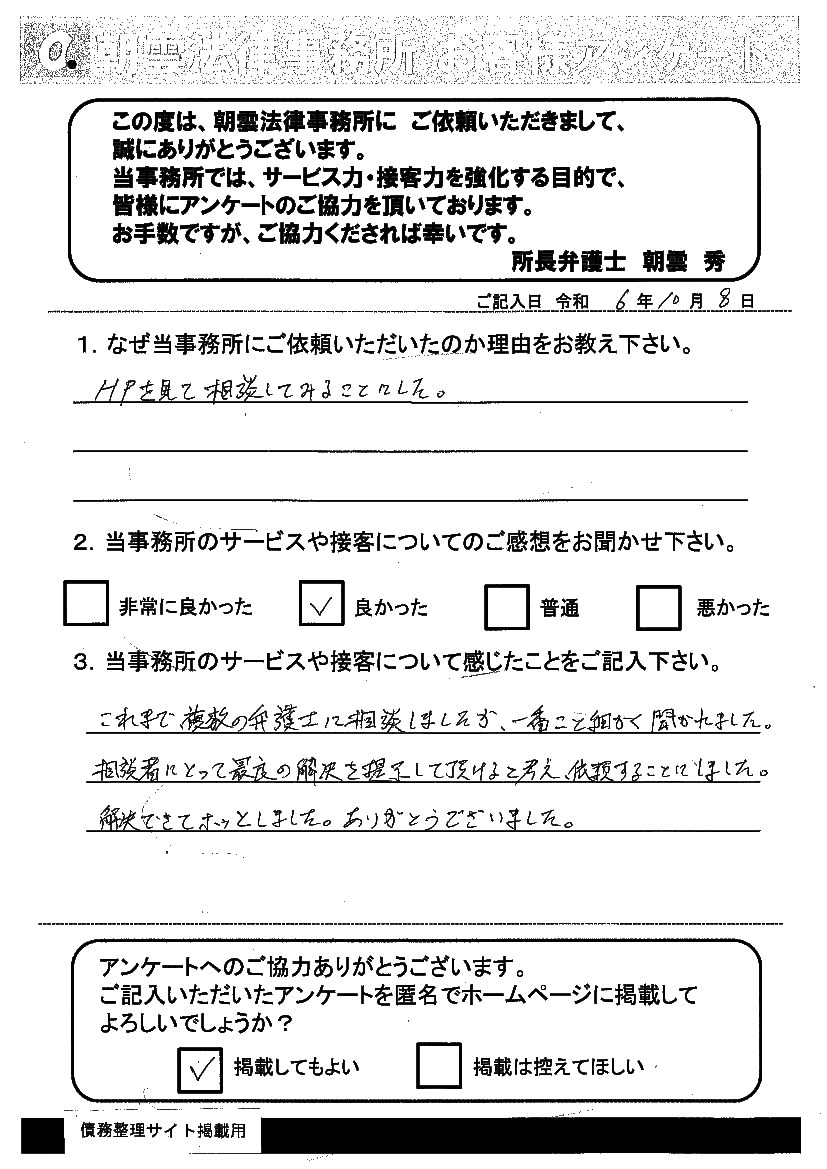 朝雲法律事務所 お客様アンケート
この度は、朝雲法律事務所に ご依頼いただきまして、
誠にありがとうございます。
当事務所では、サービス力・接客力を強化する目的で、
皆様にアンケートのご協力を頂いております。
お手数ですが、ご協力くだされば幸いです。
所長弁護士 朝雲 秀
ご記入日 令和 6年10月8日
1. なぜ当事務所にご依頼いただいたのか理由をお教え下さい。
HPを見て相談してみることにした。
2. 当事務所のサービスや接客についてのご感想をお聞かせ下さい。
非常に良かった ✓ 良かった 普通 悪かった
3. 当事務所のサービスや接客について感じたことをご記入下さい。
これまで複数の弁護士に相談しましたが、一番こと細かく聞かれました。
相談者にとって最良の解決を提示して頂けると考え、依頼することにしました。
解決できてホッとしました。ありがとうございました。
アンケートへのご協力ありがとうございます。
ご記入いただいたアンケートを匿名でホームページに掲載して
よろしいでしょうか？
✓ 掲載してもよい 掲載は控えてほしい
債務整理サイト掲載用